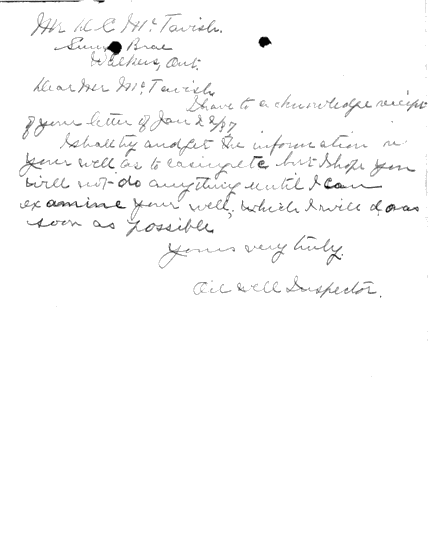 Mr D C McTavish.
Sunny Brae
Walkers, Ont.
Dear Mr McTavish
I have to acknowledge receipt
of your letter of Jan 28/37
I shall try and get the information re
your well as to casing etc but I hope you
will not do anything until I can
examine your well, which I will do as
soon as possible
Yours very truly.
Oil Well Inspector.